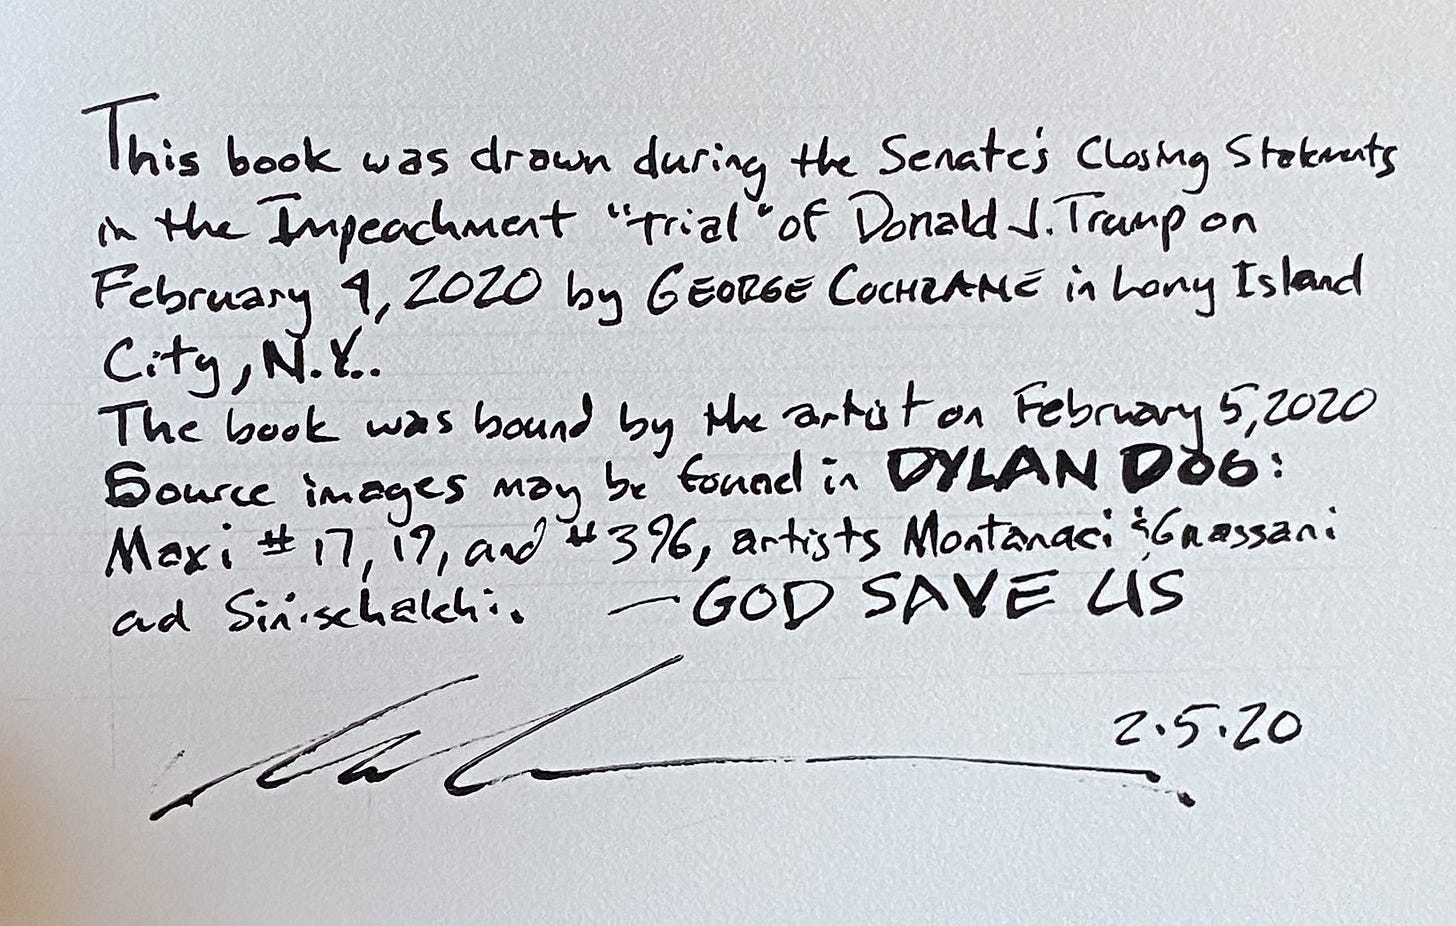 This book was drawn during the Senate's Closing Statements
in the Impeachment "trial" of Donald J. Trump on
February 4, 2020 by GEORGE COCHRANE in Long Island
City, N.Y..
The book was bound by the artist on February 5, 2020
Source images may be found in DYLAN DOG:
Maxi # 17, 19, and # 396, artists Montanari & Grassani
ad — GOD SAVE US
2.5.20